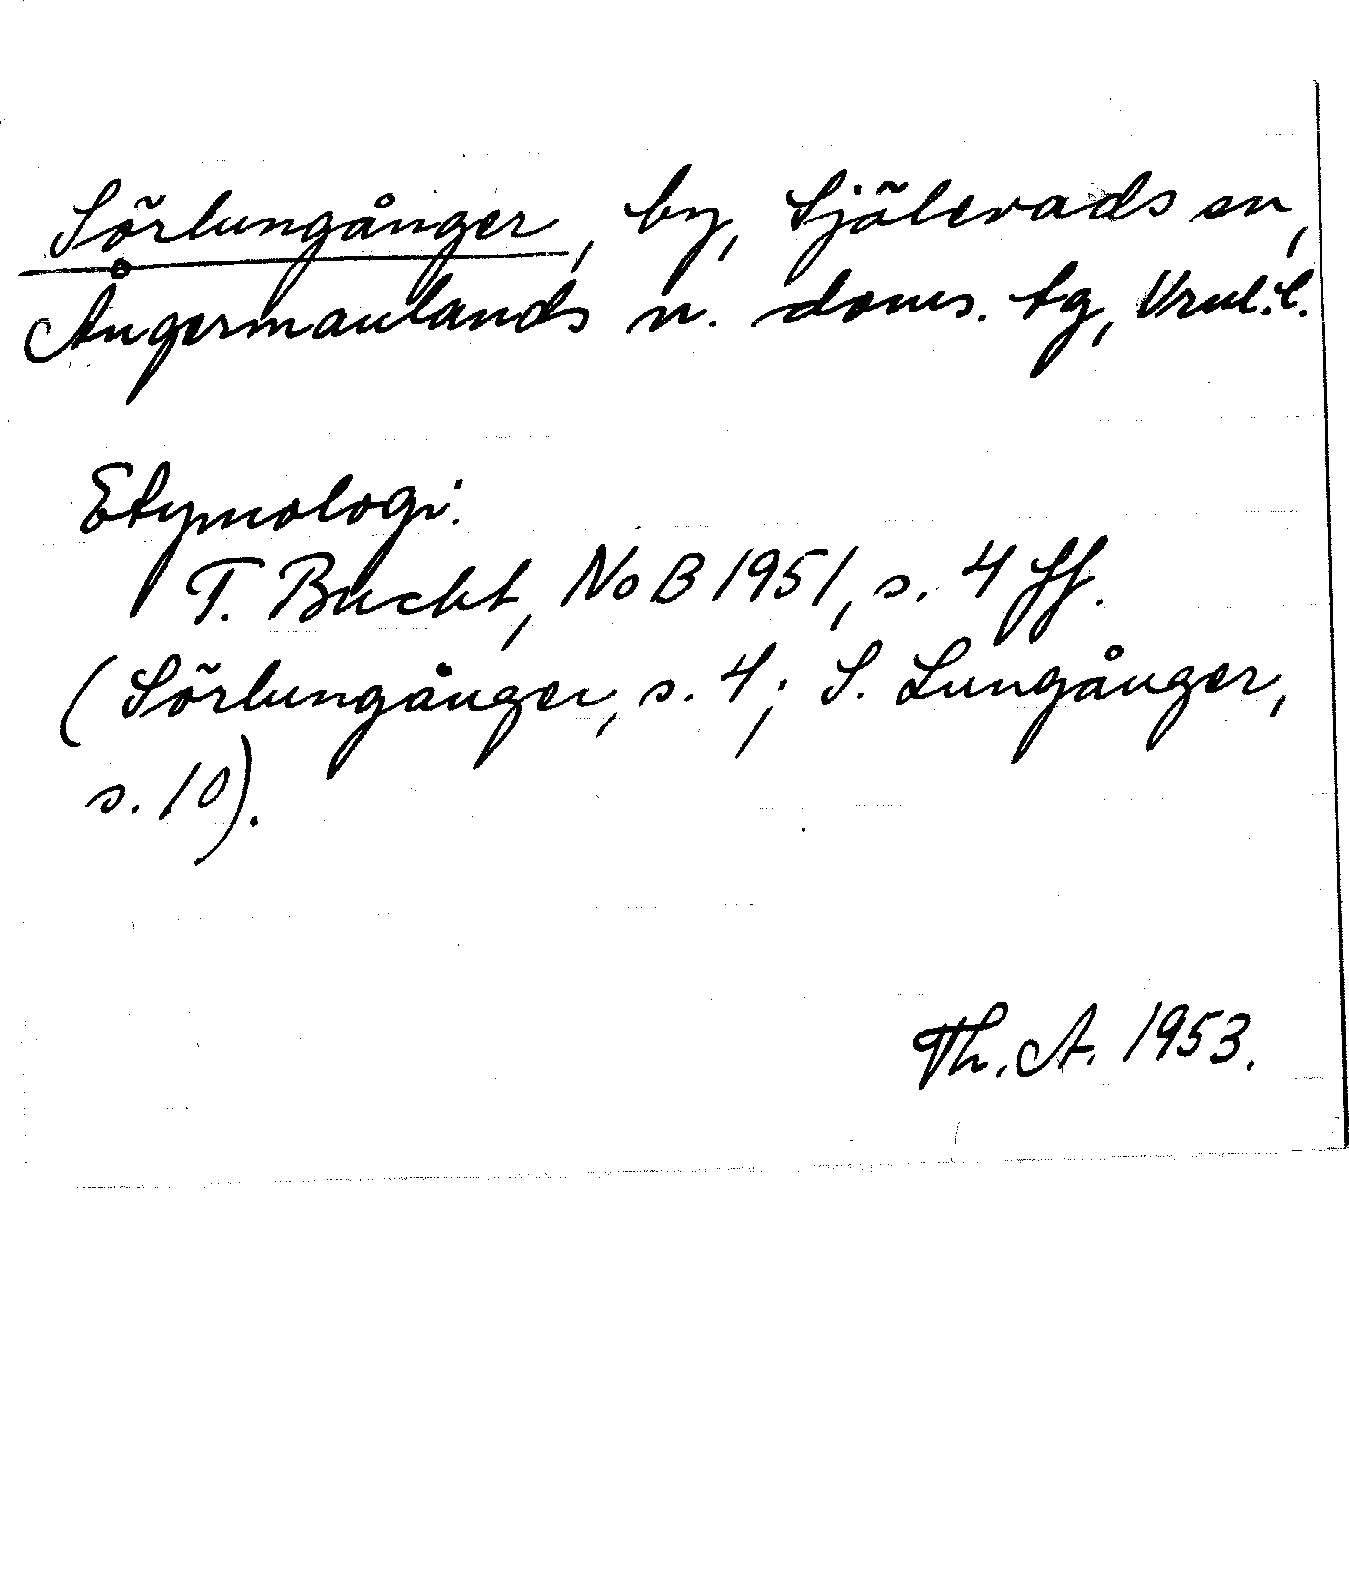 Sörlungånger, by, Själevads sn,
Ångermanlands n. doms. tg, Vrnl. l.
Etymologi.
T. Bucht, NoB 1951, s. 4 ff.
(Sörlungånger, s. 4; S. Lungånger,
s. 10).
Th. A. 1953.